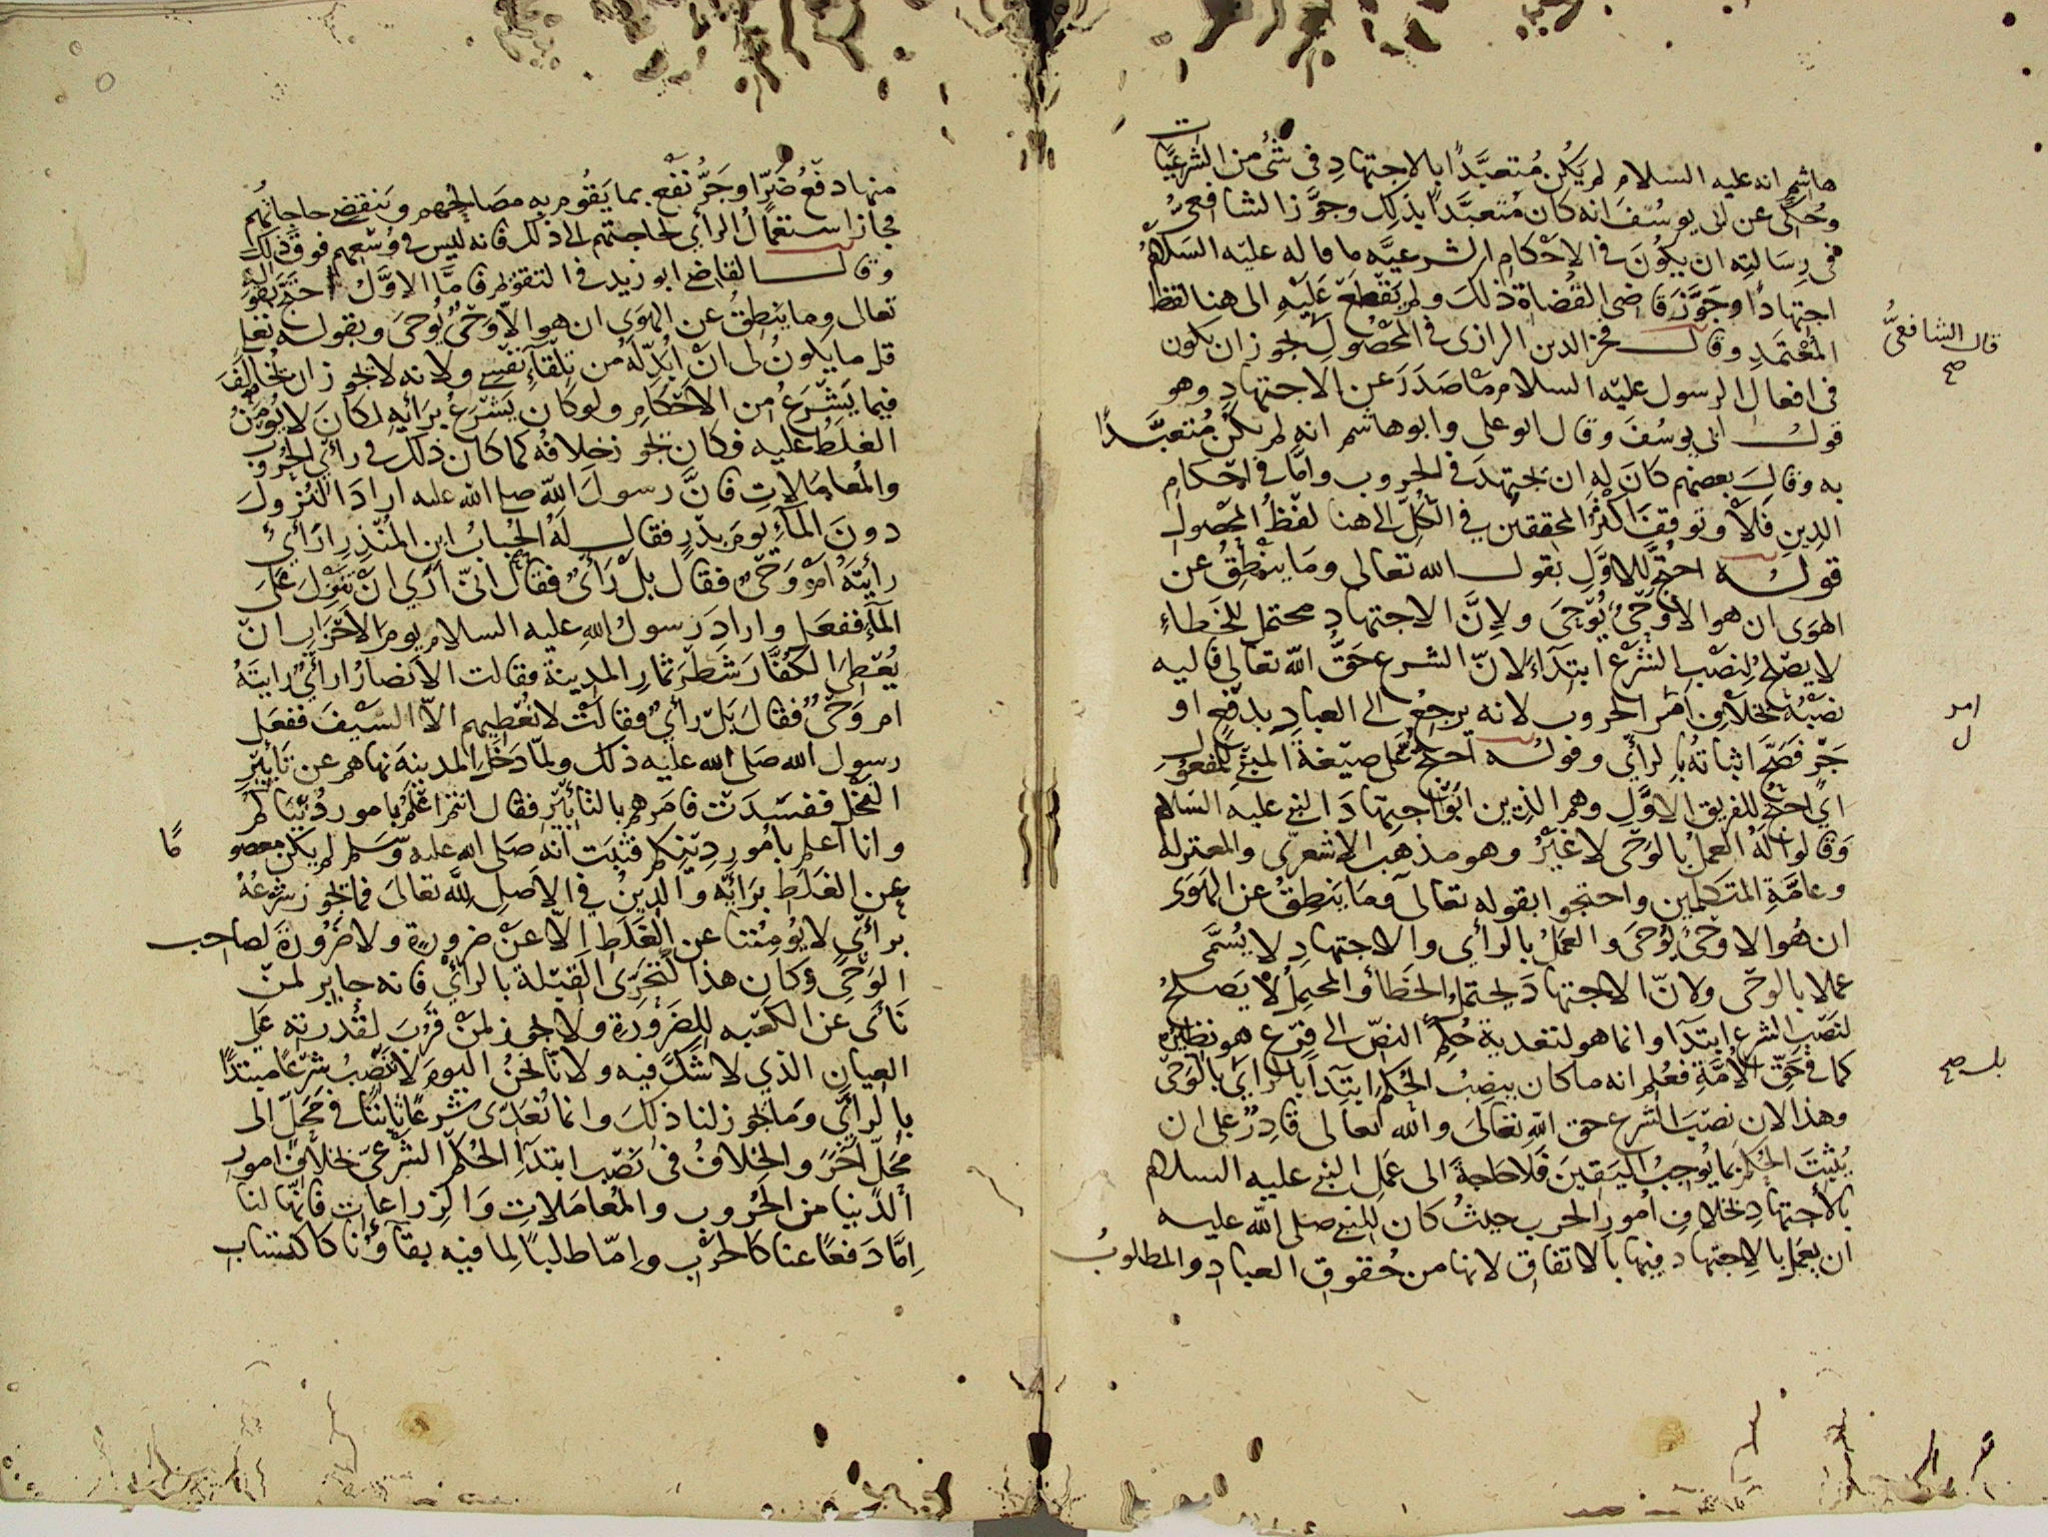 هاشم انه عليه السلام لم يَكُن مُتعبَّدًا بالاجتهادِ فى شئ من الشرعيّات
وحُكى عن ابى يوسُفَ انه كان مُتعبَّدًا بذلك وجوَّز الشافعىُّ
فى رِسَالتِه ان يكُونَ فى الاحْكَامِ الشرعيَّه ما قاله عليْه السَلامُ
اجتهادًا وجَوَّزَ قاضى القُضاة ذلكَ ولم يَقْطَعْ عَلَيْهِ الى هنا لفظ
المُعْتَمَدِ وقال فخر الدين الرازى فى المَحْصُولِ يجوز ان يكون
قال الشافعىُّ صح
فى افعال الرسول عليْه السلام ما صَدَرَ عن الاجتهادِ وهو
قول ابى يوسُفَ وقال ابو على وابو هاشم انه لم يكُنْ مُتعبَّدًا
به وقالَ بعضهم كانَ له ان يجتهدَ فى الحروب وامَّا فى احْكامِ
الدِينِ فَلاَ وتوقفَ اكثرُ المحققين فى الكلِّ الى هنا لفْظُ المحْصُولِ
قولُه احتُجَّ للاوَّلِ بقول الله تعالى ومَا ينْطِقُ عن
الهوَى ان هو الا وَحْىٌ يُوْحَى ولاِنَّ الاجتهاد محتمل للخَطاءِ
لا يصْلحُ لِنصْبِ الشرْع ابتدآءً لانّ الشرع حَقُّ الله تعالى فاليه
نصْبُهُ بخلاْفِ امْر الحروب لانه يرجعُ الى العبادِ بدفْع او
امر ل
جَرٍّ فَصَحَّ اثباتهُ بالرأىِ وقولُه احتُجَّ عَلى صيْغة المبنىّ للمفعول
اى احتُجّ للفريق الاوَّلِ وهم الذين ابَوْا اجتهادَ النبى عليه السَلام
وَقالوا لَهُ العَملُ بالوَحْى لا غيْرُ وهو مذهب الاشعرىِّ والمعتزله
وعامَّةِ المتكلمين واحتجوا بقوله تعالى وَمَا يَنطِقُ عن الهَوى
ان هُو الا وحْىٌ يُوحَى والعَملُ بالرأى والاجتهادِ لا يُسَمَّى
عملا بالوحْى ولانّ الاجتهادَ يحتملُ الخَطأ والمحتمِلُ لا يَصلحُ
لنَصْبِ الشرع ابتدآ وانما هو لتعدية حُكم النصّ الى فرع هو نظيره
كما فى حَقِّ الامَّةِ فعُلم انه ما كان ينصِبُ الحُكم ابتدآ بالرأى بالوَحْى
بل صح
وهذا لان نصْبَ الشرع حق اللهِ تعالى والله تعالى قادِرٌ على ان
يُثبتَ الحُكْم بما يُوجبُ اليَقينَ فَلا حَاجةَ الى عَملِ النبى عليه السلام
بالاجتهادِ بخلافِ امُورِ الحرب حيثُ كان للنبى صلى الله عليه
ان يعَملَ بالاجتهاد فيها بالاتفاقِ لانها من حُقوقِ العبادِ والمطلوبُ
منها دفعُ ضُرٍّ او جَرُّ نفْعٍ بما يَقُومُ به مصَالحُهم وتنقضى حاجاتُهم
فجاز استعمَالُ الرأى لحاجتهم الى ذلك فانه ليس فى وُسْعِهم فوقَ ذلك
وقال القاضى ابو زيد فى التقويم فامَّا الاوَّلُ احتجّ بقوله
تعالى وما ينْطِقُ عن الهَوَى ان هو الاّ وَحْىٌ يُوحَى وبقوله تعالى
قل ما يكونُ لى انْ ابُدِّلَهُ من تِلْقَآءِ نفْسِى ولانه لا يجوز ان يُخَالَفَ
فيما يَشْرَعُ من الاَحْكَامِ ولو كان يَشْرَعُ برَأيهِ لكانَ لا يُؤمَنُ
الغلَطُ عليه فكان يجوز خِلافُه كما كان ذلك فى رأى الحُروبِ
والمُعامَلاتِ فانَّ رسولَ اللهِ صلى الله عليه ارادَ النُزولَ
دونَ المآءِ يومَ بدْرٍ فقال لهُ الحُبابُ ابن المُنْذِرِ اَرَأىٌ
رأيتَهُ امْ وَحْىٌ فقال بلْ رَأىٌ فقال انّى ارَى انْ تَنْزِلَ عَلَى
المآءِ ففعَل وارادَ رَسولُ اللهِ عليه السلام يومَ الاحْزَابِ انْ
يُعْطِىَ الكُفَّارَ شَطْرَ ثمارِ المدينة فقالت الاَنصارُ ارأىٌ رايتَهُ
ام وَحْىٌ فقالَ بَلْ رأىٌ فقالَتْ لا نُعْطِيهم الاّ السَيْفَ ففعَل
رسول الله صَلى الله عليْه ذلك ولمّا دَخَلَ المدينةَ نهاهم عن تَأبيْرِ
النخْل ففسَدَتْ فامَرهم بالتأبيْرِ فقال انتم اعْلمُ بامور دُنْيَاكم
وانا اعلم بامُور دِيْنِكم فثَبتَ انه صَلى الله عليه وَسَلم لم يكن معصو
مًا
عن الغَلَطِ برَأيه والدِينُ فى الاَصلِ لِلّهِ تعالىَ فما يجُوز شَرْعُهُ
برأىٍ لا يُومِنُنا عن الغَلَطِ اِلاّ عنْ ضرورةٍ ولا ضَرُورةَ لصاحب
الوَحْىِ وكان هذا كتحَرِّى القبْلة بالرأىِ فانه جايز لمنْ
نَأى عن الكَعْبه للضَرُورَةِ ولا يجوز لمنْ قَرُبَ لقُدْرته على
العيانِ الذي لا شكَّ فيه ولانّا نحْنُ اليومَ لا نَنْصُبُ شرْعًا مبتدَأً
بالرأىِ وَما يجوز لنا ذلكَ وانما نُعَدِّى شرْعًا ثابتًا فى مَحَلٍّ الى
مَحَلٍّ آخَرَ والخِلافُ فى نَصْب ابتدآءِ الحُكْم الشَرْعىّ بخلافِ امورِ
الدُنْيا من الحُروب والمُعامَلاتِ وَالزراعات فانّها لنا
اِمَّا دَفْعًا عنا كالحرْبِ وامّا طلبًا لِما فيه بقآؤُنا كاكتسابِ